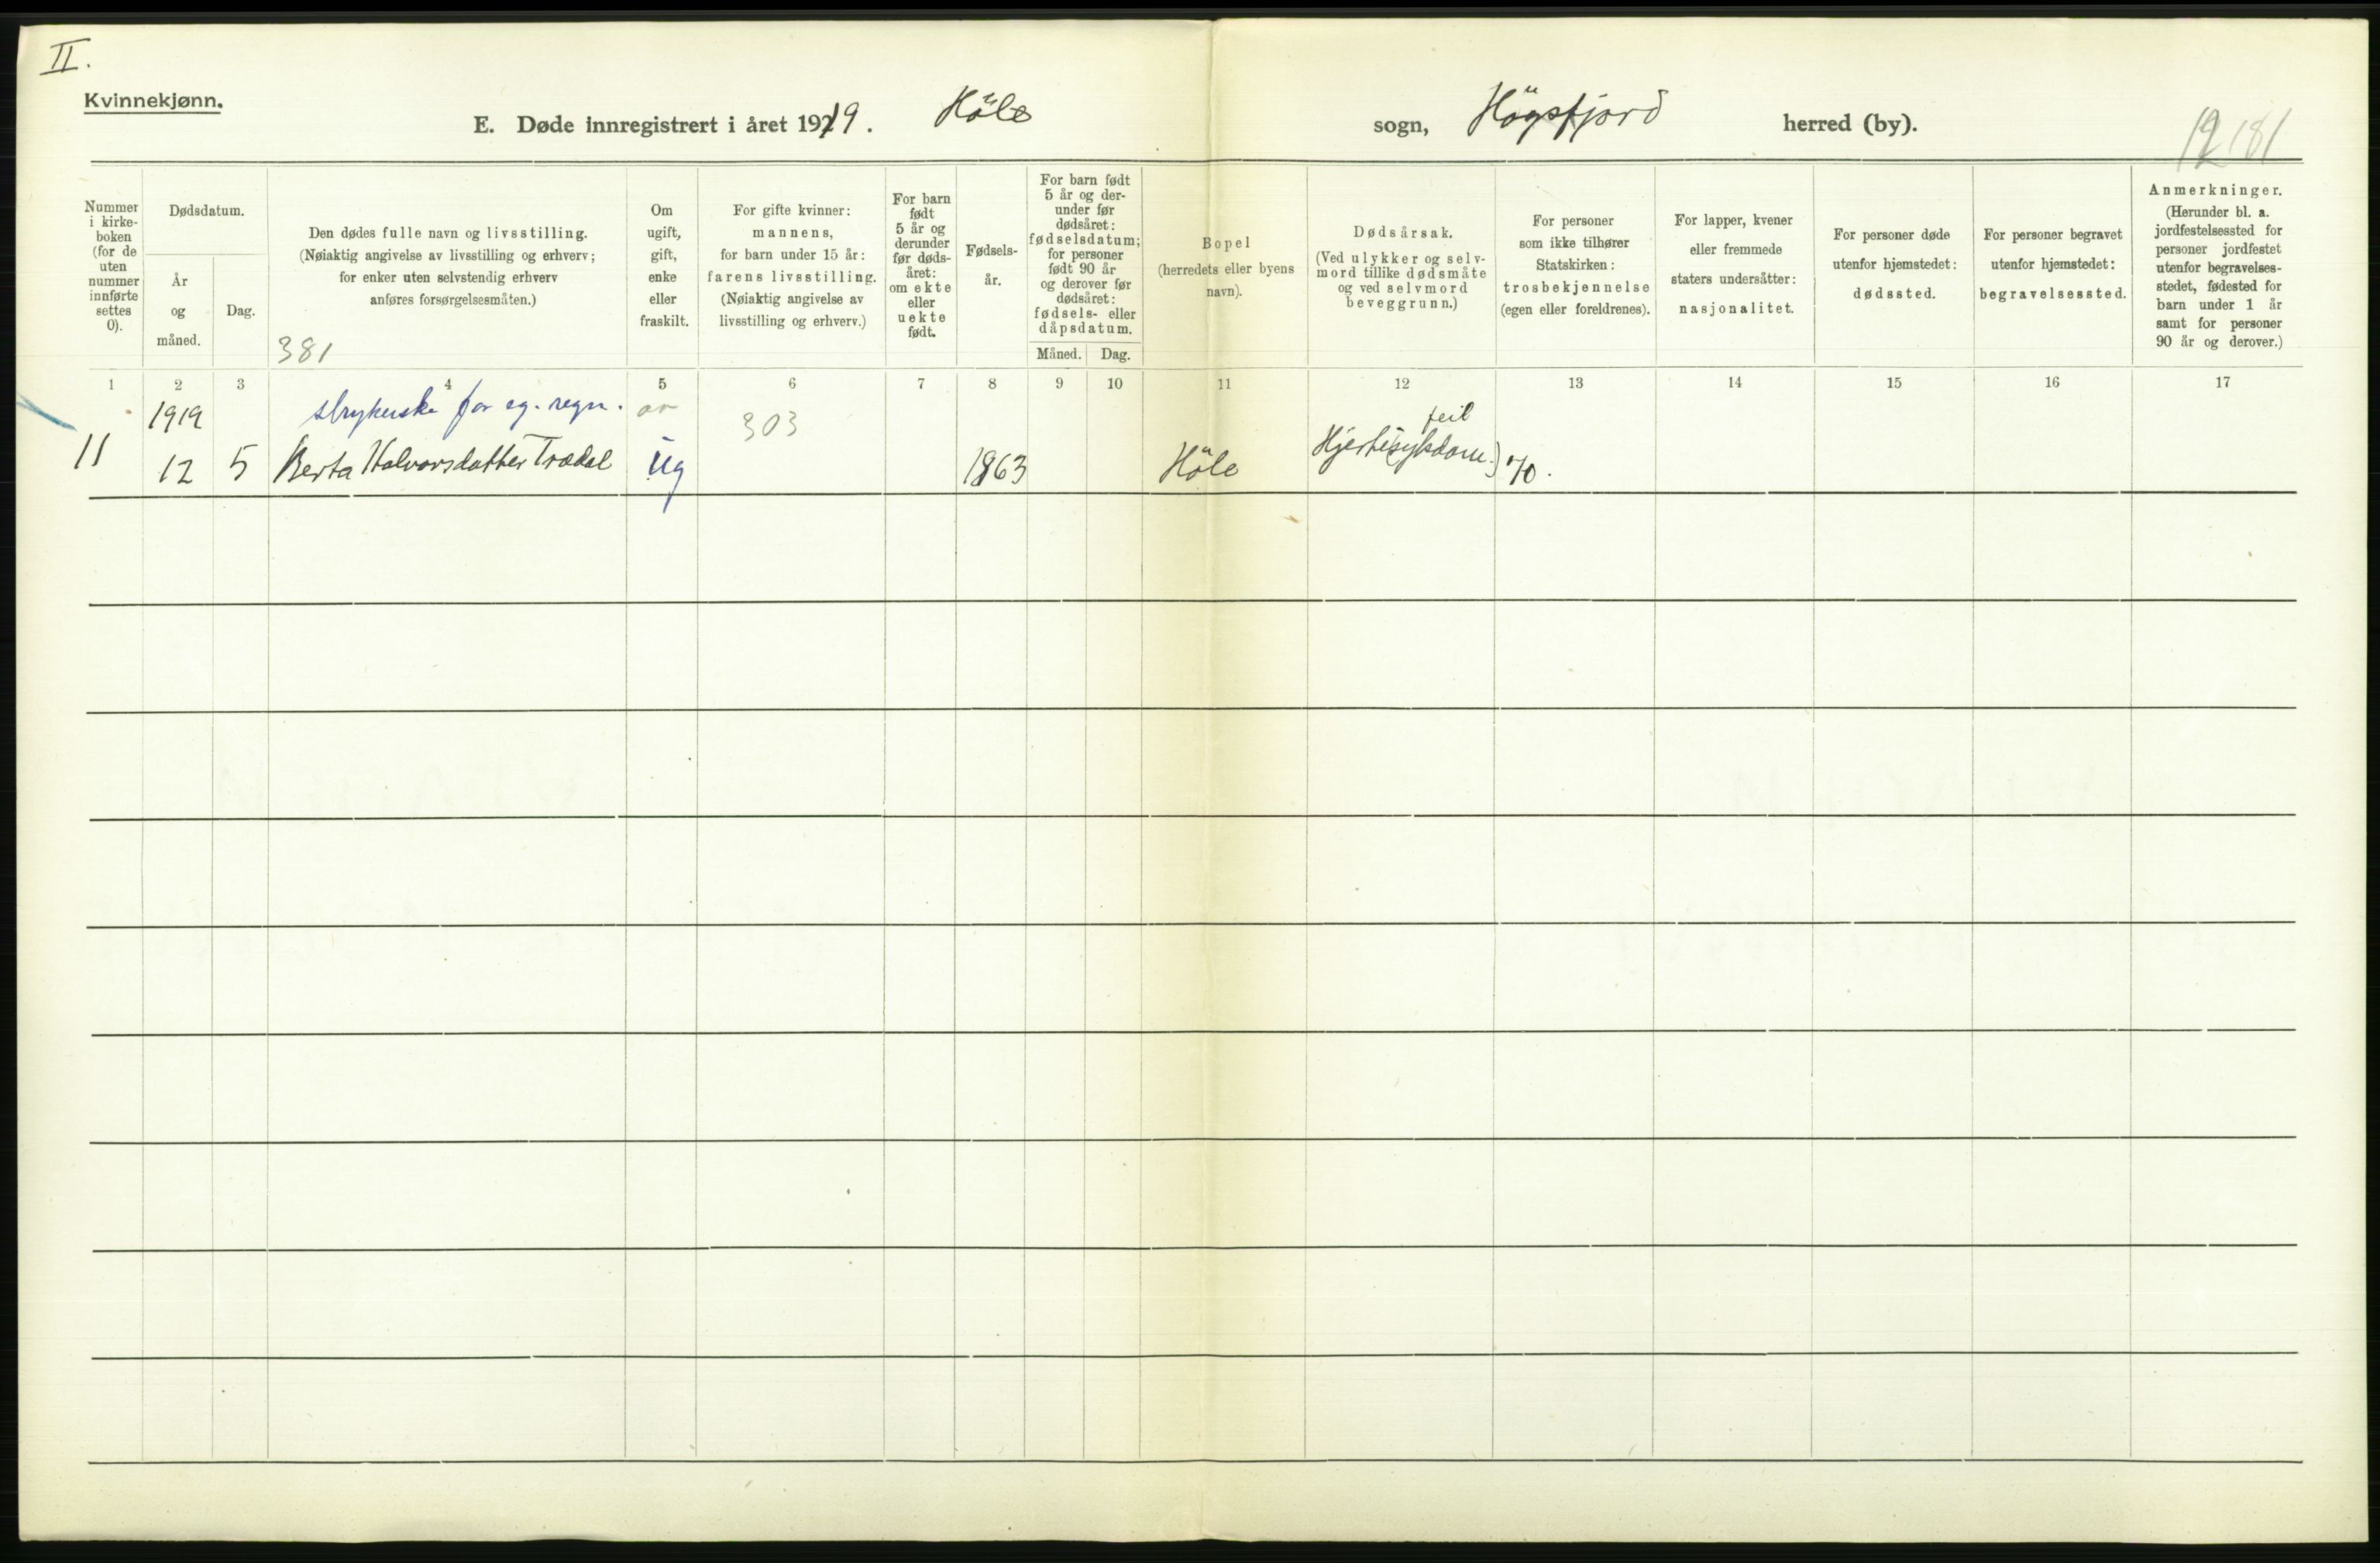 II.
Kvinnekjønn.
E. Døde innregistrert i året 1919. Höle sogn, Högsfjord herred (by).
12 181
Nummer i kirke-boken (for de uten nummer innførte settes 0).
Dødsdatum.
År og måned.
Dag.
Den dødes fulle navn og livsstilling.
(Nøiaktig angivelse av livsstilling og erhverv;
for enker uten selvstendig erhverv
anføres forsørgelsesmåten.)
381
Om ugift, gift, enke eller fraskilt.
For gifte kvinner:
mannens,
for barn under 15 år:
farens livsstilling.
(Nøiaktig angivelse av
livsstilling og erhverv.)
For barn født 5 år og derunder før døds-året: om ekte eller uekte født.
Fødsels-år.
For barn født 5 år og der-under før dødsåret: fødselsdatum; for personer født 90 år og derover før dødsåret: fødsels- eller dåpsdatum.
Måned. Dag.
Bopel
(herredets eller byens
navn).
Dødsårsak.
(Ved ulykker og selv-
mord tillike dødsmåte
og ved selvmord
beveggrunn.)
For personer
som ikke tilhører
Statskirken:
trosbekjennelse
(egen eller foreldrenes).
For lapper, kvener
eller fremmede
staters undersåtter:
nasjonalitet.
For personer døde
utenfor hjemstedet:
dødssted.
For personer begravet
utenfor hjemstedet:
begravelsessted.
Anmerkninger.
(Herunder bl. a.
jordfestelsessted for
personer jordfestet
utenfor begravelses-
stedet, fødested for
barn under 1 år
samt for personer
90 år og derover.)
1 2 3 4 5 6 7 8 9 10 11 12 13 14 15 16 17
1919 strykerske for eg. regn. 303 feil
11 12 5 Berta Halvorsdatter Trædal ug 1863 Höle Hjerte(sykdom.)